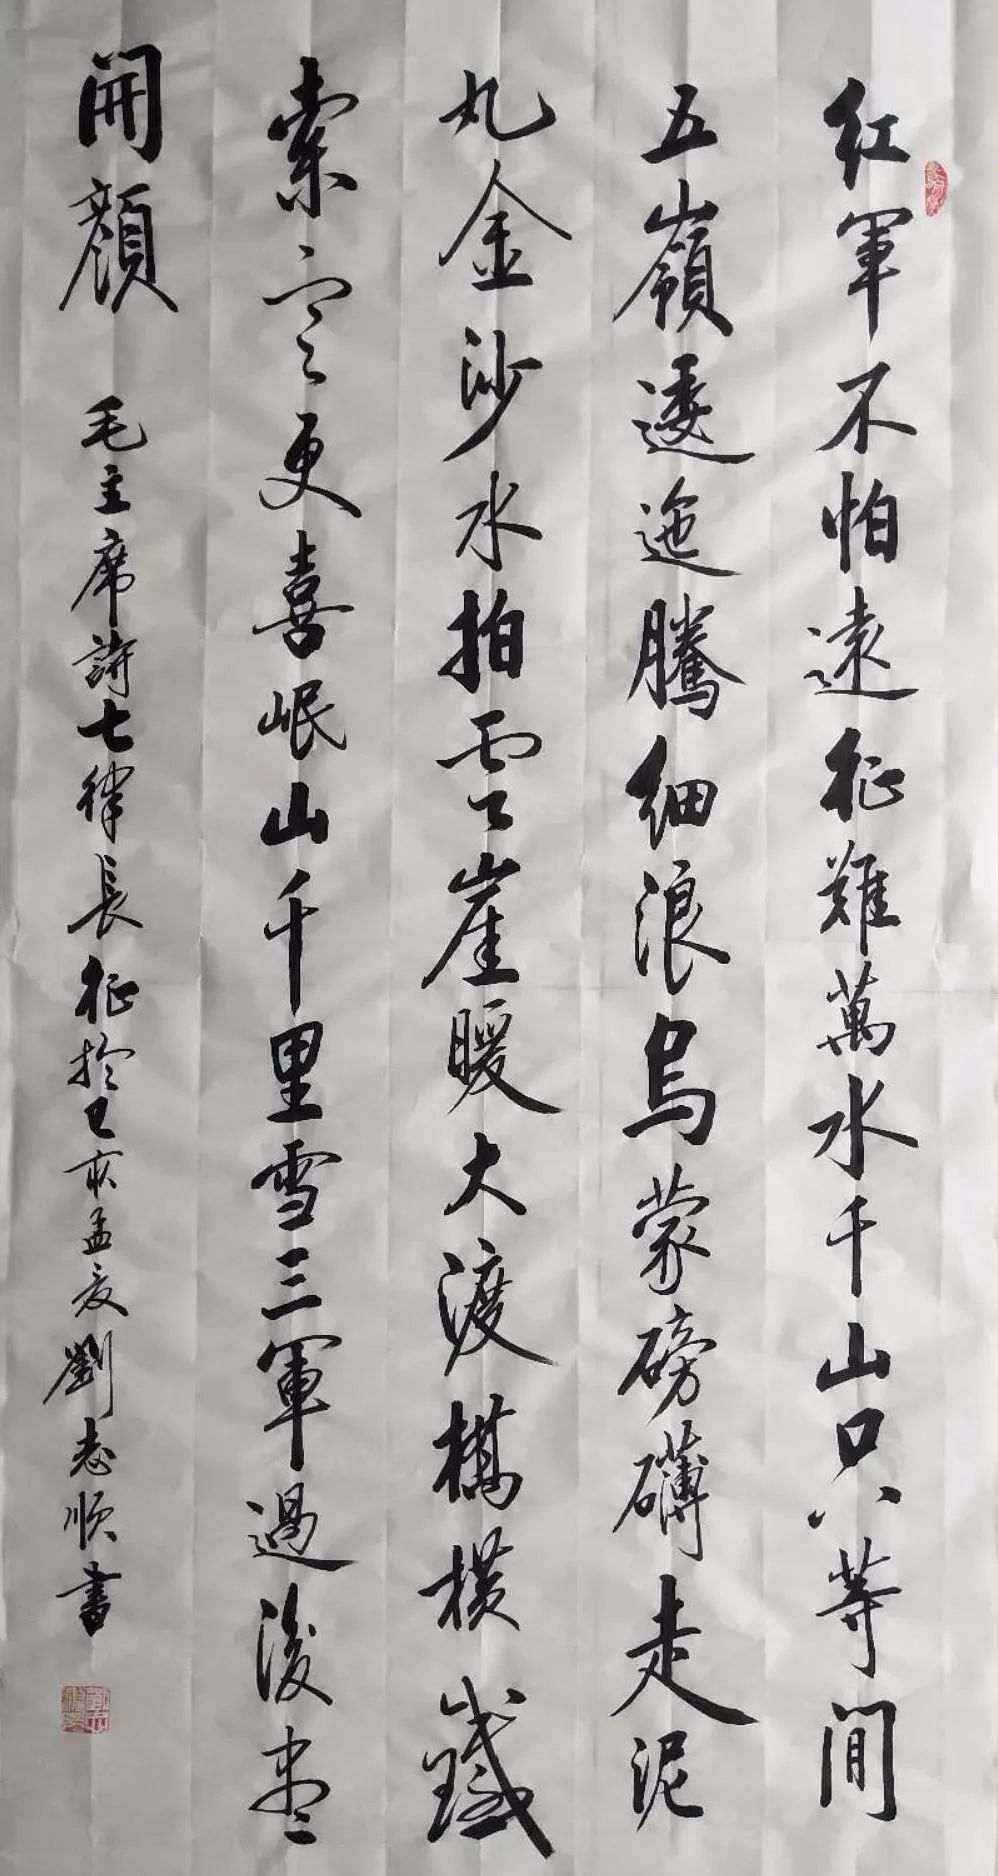 紅軍不怕遠征難萬水千山只等閒
五嶺逶迤騰細浪烏蒙磅礴走泥
丸金沙水拍雲崖暖大渡橋橫鐵
索寒更喜岷山千里雪三軍過後盡
開顏
毛主席詩七律長征於己亥孟夏劉志順書